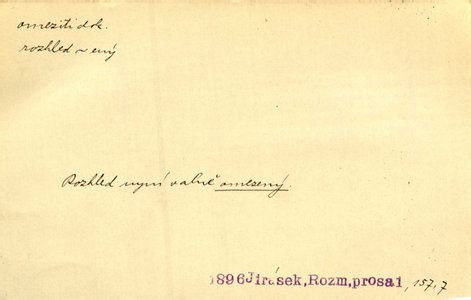 omeziti dok.
rozhled ~ ený
Rozhled nyní valně omezený.
1896 Jirásek, Rozm, prosa1, 157, 7